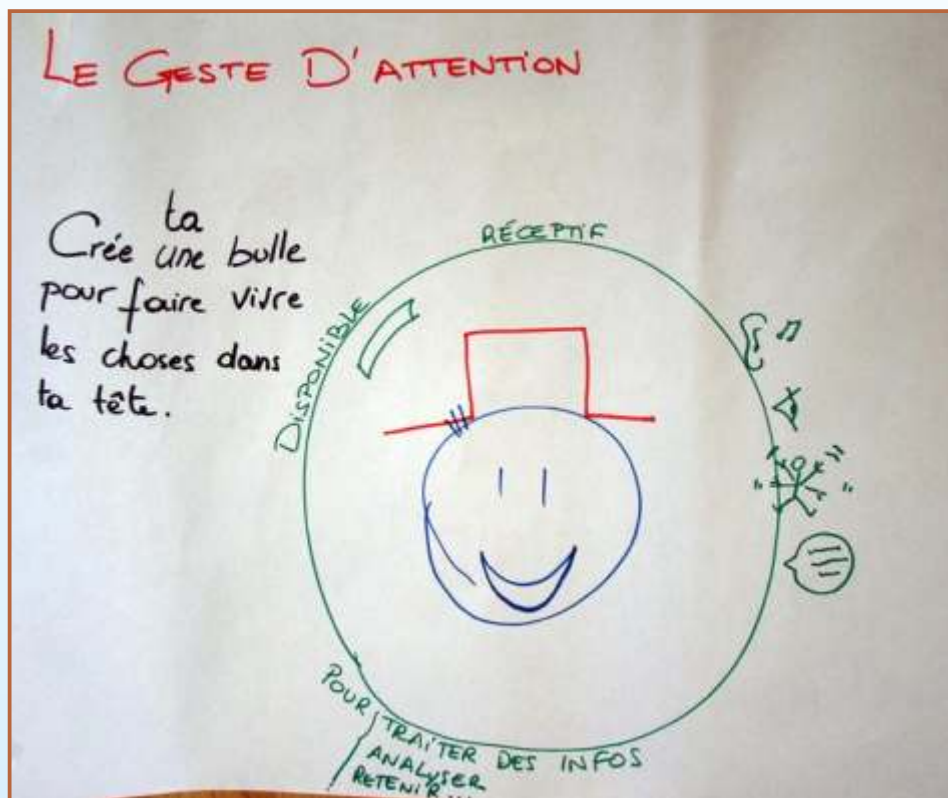 LE GESTE D'ATTENTION
ta
Crée une bulle
pour faire vivre
les choses dans
ta tête.
RÉCEPTIF
DISPONIBLE
POUR TRAITER DES INFOS
ANALYSER
RETENIR...